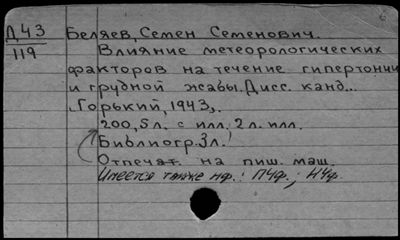 Д 43
119
Беляев, Семен Семенович.
Влияние метеорологических
факторов на течение гипертонии
и грудной жабы. Дисс. канд...
Горький, 1943,.
200,5л. с илл; 2 л. илл.
Библиогр. 3л.
Отпечат. на пиш. маш.
Имеется также нф.: ПЧф.; НЧф.